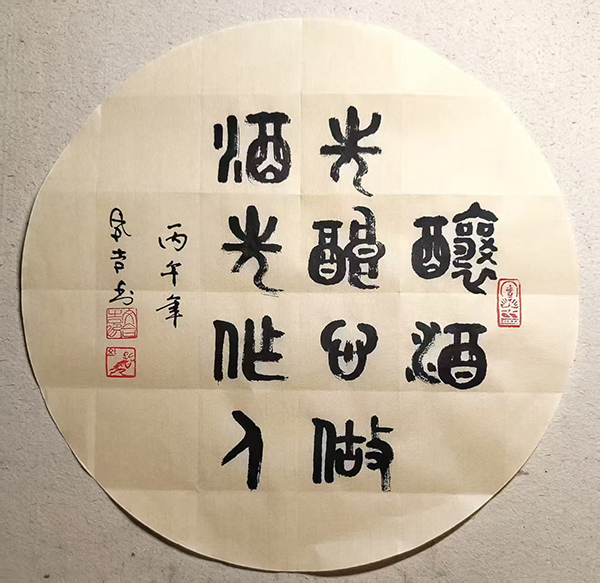 釀酒
先心做
酒先作人
丙午年
吉书